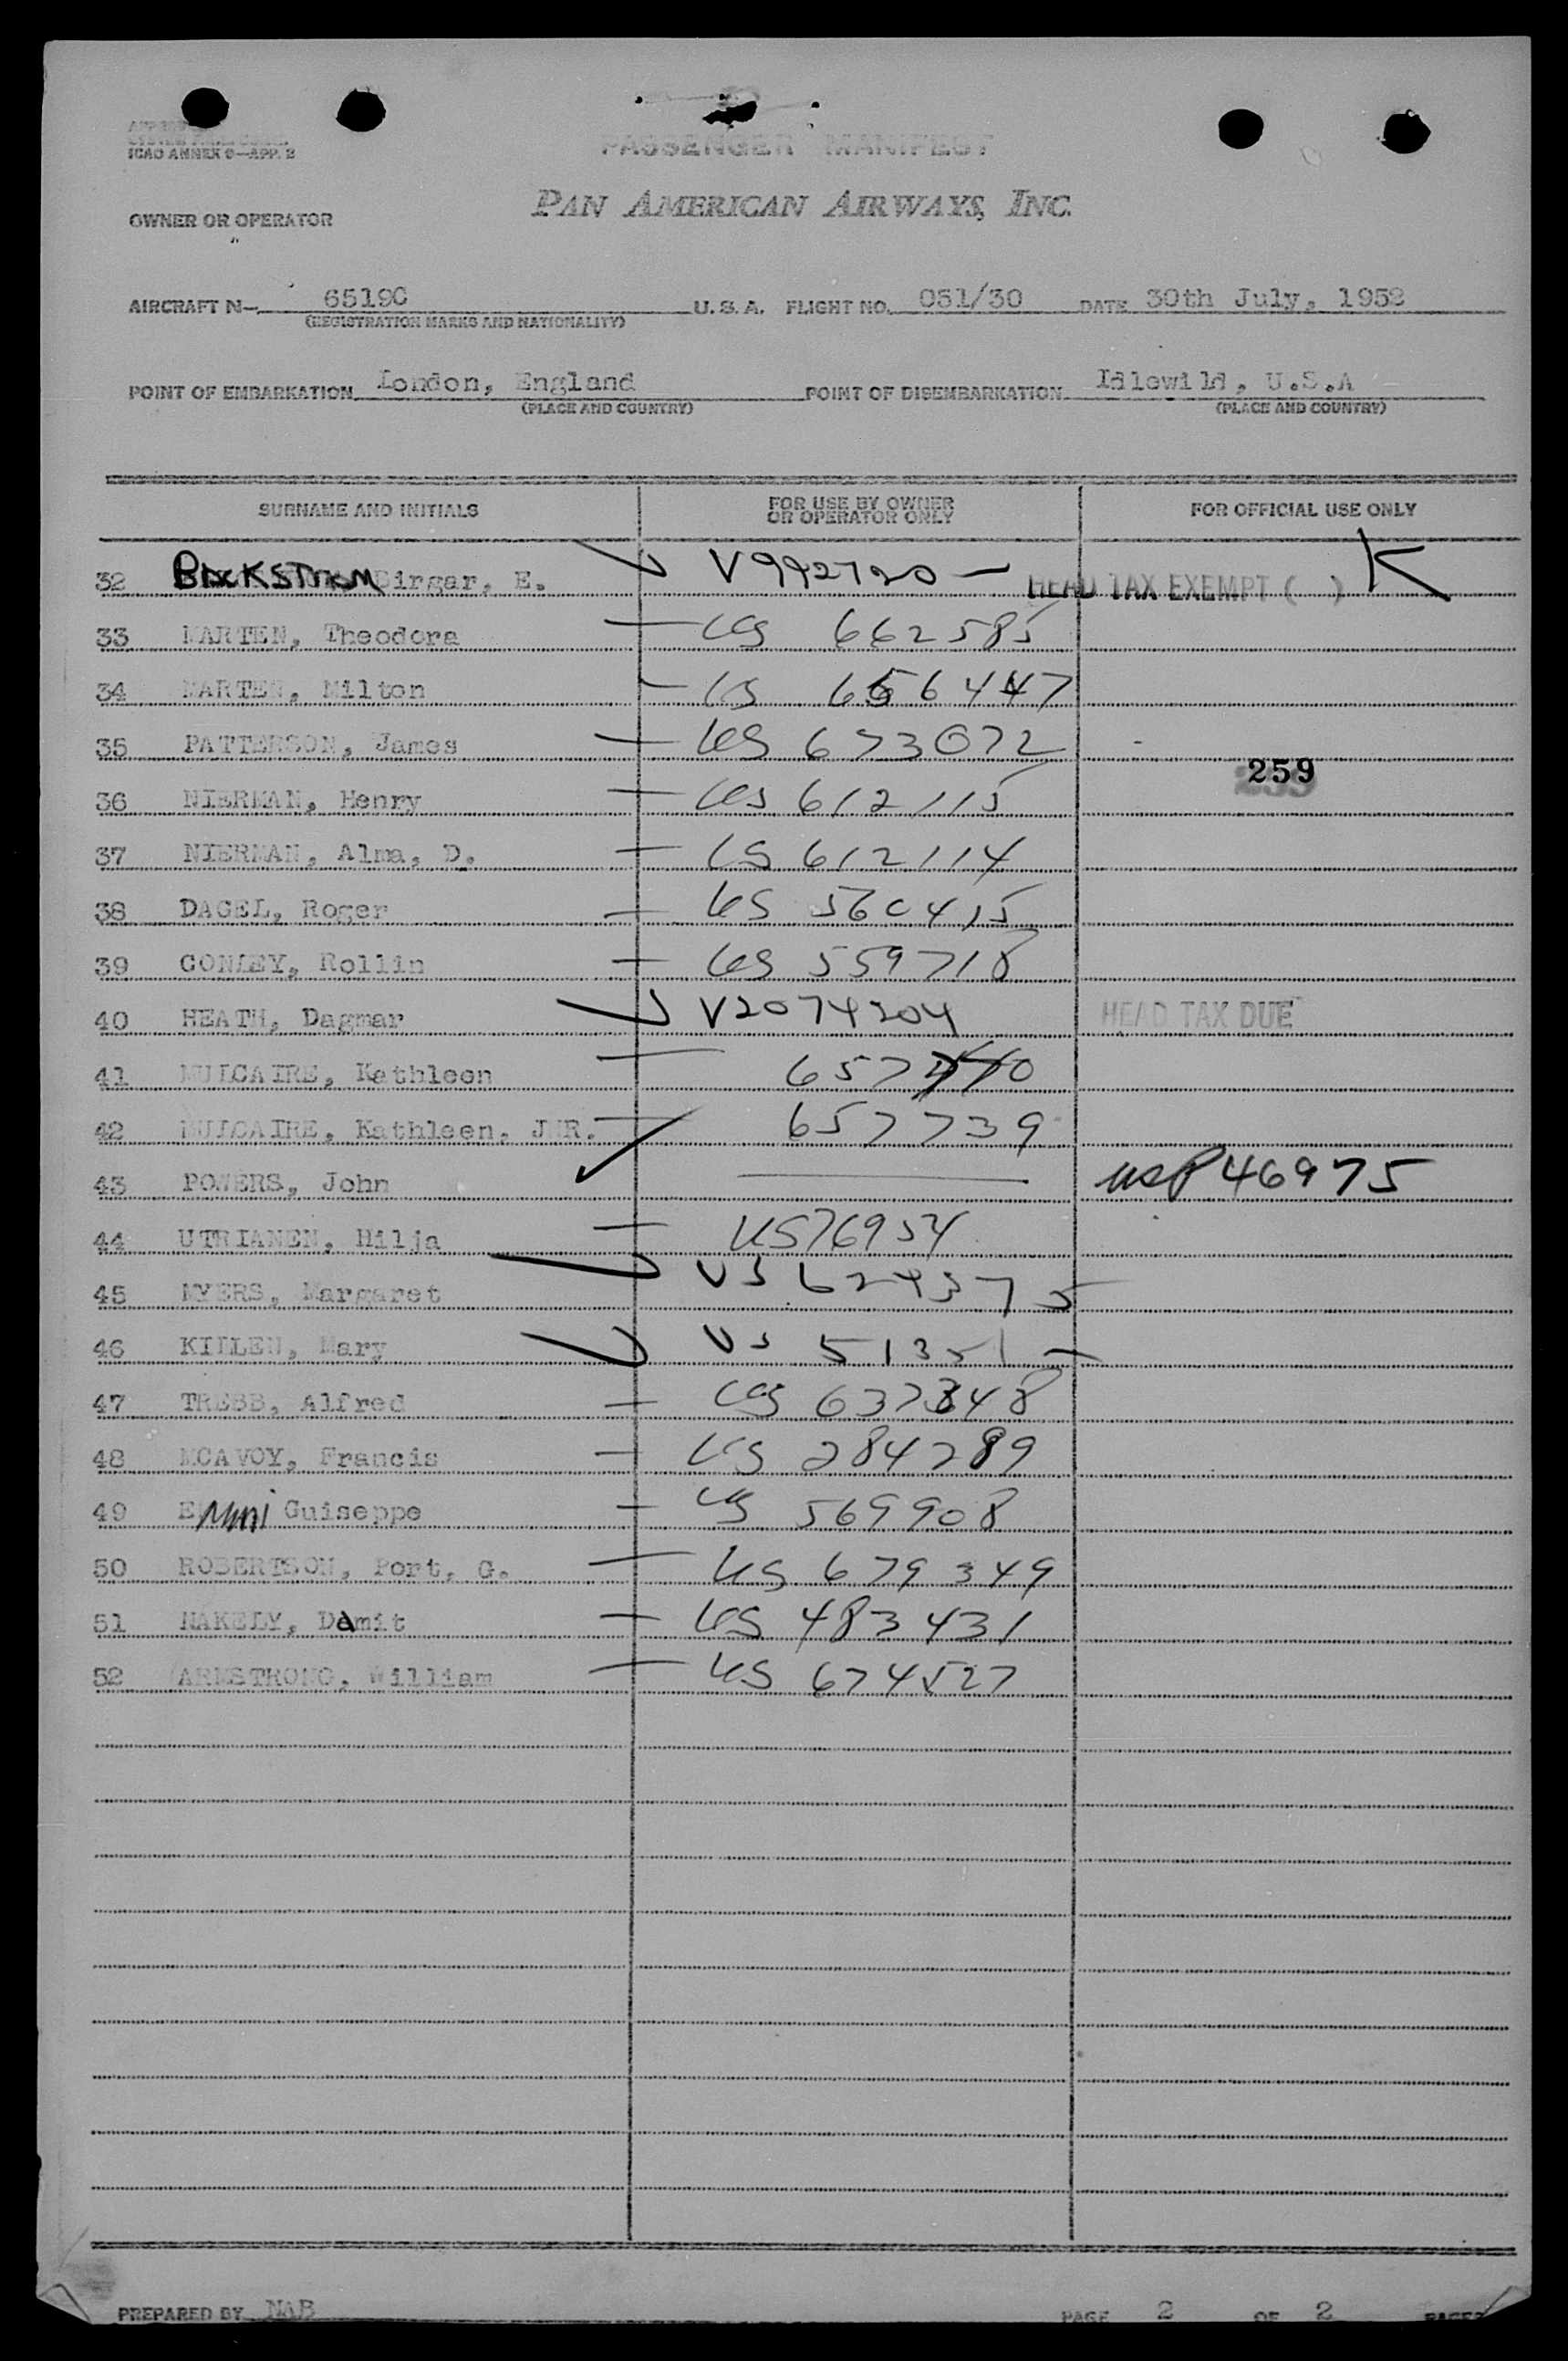 ICAO ANNEX 9—APP. 2
PASSENGER MANIFEST
PAN AMERICAN AIRWAYS, INC.
OWNER OR OPERATOR
AIRCRAFT N— 6519C U.S.A. FLIGHT NO. 051/30 DATE 30th July, 1952
(REGISTRATION MARKS AND NATIONALITY)
POINT OF EMBARKATION London, England POINT OF DISEMBARKATION Idlewild, U.S.A
(PLACE AND COUNTRY) (PLACE AND COUNTRY)
SURNAME AND INITIALS FOR USE BY OWNER OR OPERATOR ONLY FOR OFFICIAL USE ONLY
32 BACKSTROM Birgar, E. V992720 — HEAD TAX EXEMPT ( ) K
33 MARTEN, Theodora — US 662585
34 MARTEN, Milton — US 656447
35 PATTERSON, James — US 673072
259
36 NIERMAN, Henry — US 612115
37 NIERMAN, Alma, D. — US 612114
38 DAGEL, Roger — US 560415
39 CONLEY, Rollin — US 559718
40 HEATH, Dagmar V2074204 HEAD TAX DUE
41 MULCAIRE, Kathleen — 657740
42 MULCAIRE, Kathleen. JNR. — 657739
43 POWERS, John ✓ — USP 46975
44 UTRIANEN, Hilja — US76954
45 MYERS, Margaret US 624375
46 KILLEN, Mary US 51351 —
47 TREBB, Alfred — US 637348
48 MCAVOY, Francis — US 284289
49 Emini Guiseppe — US 569908
50 ROBERTSON, Port, G. — US 679349
51 NAKELY, Damit — US 483431
52 ARMSTRONG, William — US 674527
PREPARED BY NAB PAGE 2 OF 2 PAGES